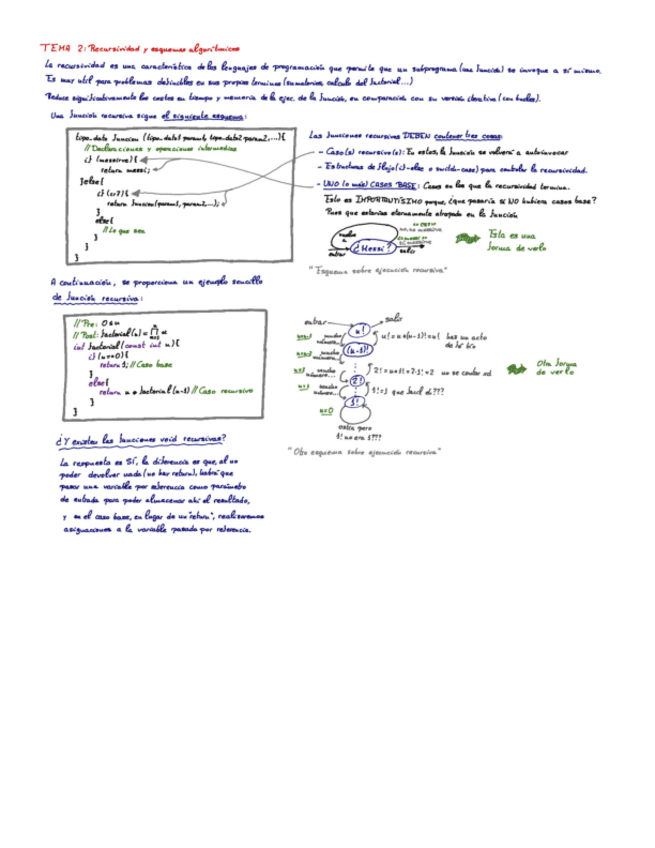 TEMA 2: Recursividad y esquemas algorítmicos
La recursividad es una característica de los lenguajes de programación que permite que un subprograma (una función) se invoque a sí mismo.
Es muy útil para problemas definibles en sus propios términos (sumatorios, cálculo del factorial...)
Reduce significativamente los costes en tiempo y memoria de la ejec. de la función, en comparación con su versión iterativa (con bucles).
Una función recursiva sigue el siguiente esquema:
tipo_dato funcion (tipo_dato1 param1, tipo_dato2 param2,...){
// Declaraciones y operaciones intermedias
return messi;
}else{
return funcion(param1, param2,...);
}
else{
// Lo que sea
}
}
}
Las funciones recursivas DEBEN contener tres cosas:
- Caso(s) recursivo(s): En estos, la función se volverá a autoinvocar
- Estructuras de flujo (if-else o switch-case) para controlar la recursividad.
- UNO (o más) CASOS BASE: Casos en los que la recursividad termina.
Esto es IMPORTANTÍSIMO porque, ¿qué pasaría si NO hubiera casos base?
Pues que estarías eternamente atrapado en la función
vuelve a
entrar
¿Messi?
salir
Esta es una
forma de verlo
"Esquema sobre ejecución recursiva"
A continuación, se proporciona un ejemplo sencillo
de función recursiva:
// Pre: 0≤n
int factorial (const int n){
if (n==0){
return 1; // Caso base
}
else{
return n * factorial (n-1) // Caso recursivo
}
}
entrar
salir
n!
(n-1)!
2!
1!
n=0
Otra forma
de verlo
entra pero
1! no era 1???
"Otro esquema sobre ejecución recursiva"
¿Y existen las funciones void recursivas?
La respuesta es SÍ, la diferencia es que, al no
poder devolver nada (no hay return), habrá que
pasar una variable por referencia como parámetro
de entrada para poder almacenar ahí el resultado,
y en el caso base, en lugar de un "return", realizaremos
asignaciones a la variable pasada por referencia.